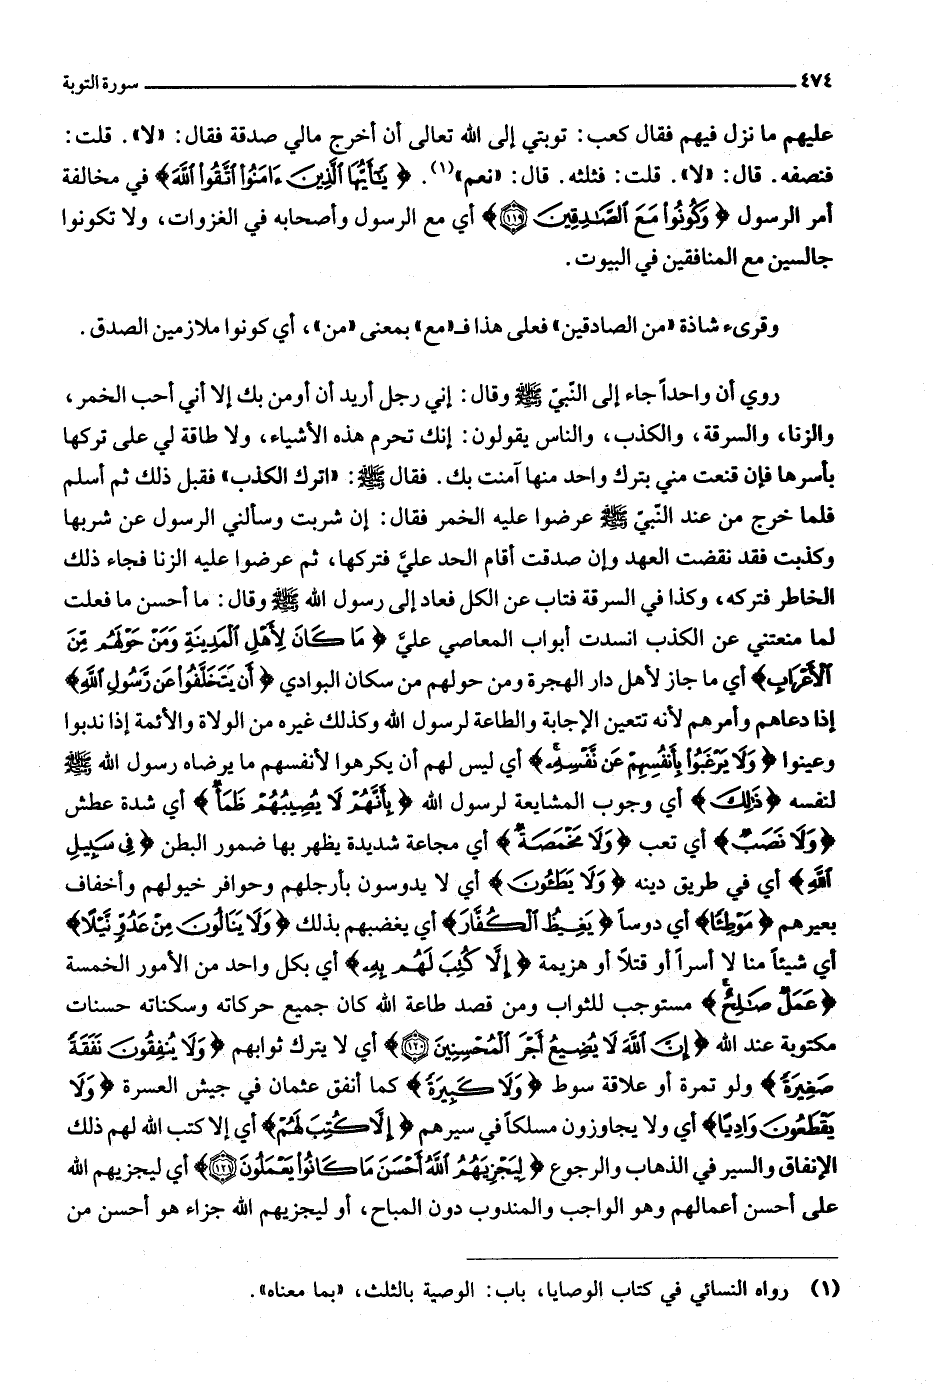 ٤٧٤ سورة التوبة
عليهم ما نزل فيهم فقال كعب: توبتي إلى الله تعالى أن أخرج مالي صدقة فقال: «لا». قلت:
فنصفه. قال: «لا». قلت: فثلثه. قال: «نعم»(١). ﴿ يَٰٓأَيُّهَا ٱلَّذِينَ ءَامَنُوا۟ ٱتَّقُوا۟ ٱللَّهَ﴾ في مخالفة
أمر الرسول ﴿ وَكُونُوا۟ مَعَ ٱلصَّٰدِقِينَ ١١٩﴾ أي مع الرسول وأصحابه في الغزوات، ولا تكونوا
جالسين مع المنافقين في البيوت.
وقرىء شاذة «من الصادقين» فعلى هذا فـ«مع» بمعنى «من»، أي كونوا ملازمين الصدق.
روي أن واحداً جاء إلى النّبيّ ﷺ وقال: إني رجل أريد أن أومن بك إلا أني أحب الخمر،
والزنا، والسرقة، والكذب، والناس يقولون: إنك تحرم هذه الأشياء، ولا طاقة لي على تركها
بأسرها فإن قنعت مني بترك واحد منها آمنت بك. فقال ﷺ: «اترك الكذب» فقبل ذلك ثم أسلم
فلما خرج من عند النّبيّ ﷺ عرضوا عليه الخمر فقال: إن شربت وسألني الرسول عن شربها
وكذبت فقد نقضت العهد وإن صدقت أقام الحد عليَّ فتركها، ثم عرضوا عليه الزنا فجاء ذلك
الخاطر فتركه، وكذا في السرقة فتاب عن الكل فعاد إلى رسول الله ﷺ وقال: ما أحسن ما فعلت
لما منعتني عن الكذب انسدت أبواب المعاصي عليَّ ﴿ مَا كَانَ لِأَهْلِ ٱلْمَدِينَةِ وَمَنْ حَوْلَهُم مِّنَ
ٱلْأَعْرَابِ﴾ أي ما جاز لأهل دار الهجرة ومن حولهم من سكان البوادي ﴿ أَن يَتَخَلَّفُوا۟ عَن رَّسُولِ ٱللَّهِ﴾
إذا دعاهم وأمرهم لأنه تتعين الإجابة والطاعة لرسول الله وكذلك غيره من الولاة والأئمة إذا ندبوا
وعينوا ﴿ وَلَا يَرْغَبُوا۟ بِأَنفُسِهِمْ عَن نَّفْسِهِۦ﴾ أي ليس لهم أن يكرهوا لأنفسهم ما يرضاه رسول الله ﷺ
لنفسه ﴿ ذَٰلِكَ﴾ أي وجوب المشايعة لرسول الله ﴿ بِأَنَّهُمْ لَا يُصِيبُهُمْ ظَمَأٌ﴾ أي شدة عطش
﴿وَلَا نَصَبٌ﴾ أي تعب ﴿وَلَا مَخْمَصَةٌ﴾ أي مجاعة شديدة يظهر بها ضمور البطن ﴿ فِى سَبِيلِ
ٱللَّهِ﴾ أي في طريق دينه ﴿ وَلَا يَطَـُٔونَ﴾ أي لا يدوسون بأرجلهم وحوافر خيولهم وأخفاف
بعيرهم ﴿ مَوْطِئًا﴾ أي دوساً ﴿ يَغِيظُ ٱلْكُفَّارَ﴾ أي يغضبهم بذلك ﴿ وَلَا يَنَالُونَ مِنْ عَدُوٍّ نَّيْلًا﴾
أي شيئاً منا لا أسراً أو قتلاً أو هزيمة ﴿ إِلَّا كُتِبَ لَهُم بِهِۦ﴾ أي بكل واحد من الأمور الخمسة
﴿عَمَلٌ صَٰلِحٌ﴾ مستوجب للثواب ومن قصد طاعة الله كان جميع حركاته وسكناته حسنات
مكتوبة عند الله ﴿ إِنَّ ٱللَّهَ لَا يُضِيعُ أَجْرَ ٱلْمُحْسِنِينَ ١٢٠﴾ أي لا يترك ثوابهم ﴿ وَلَا يُنفِقُونَ نَفَقَةً
صَغِيرَةً﴾ ولو تمرة أو علاقة سوط ﴿ وَلَا كَبِيرَةً﴾ كما أنفق عثمان في جيش العسرة ﴿ وَلَا
يَقْطَعُونَ وَادِيًا﴾ أي ولا يجاوزون مسلكاً في سيرهم ﴿ إِلَّا كُتِبَ لَهُمْ﴾ أي إلا كتب الله لهم ذلك
الإنفاق والسير في الذهاب والرجوع ﴿ لِيَجْزِيَهُمُ ٱللَّهُ أَحْسَنَ مَا كَانُوا۟ يَعْمَلُونَ ١٢١﴾ أي ليجزيهم الله
على أحسن أعمالهم وهو الواجب والمندوب دون المباح، أو ليجزيهم الله جزاء هو أحسن من
(١) رواه النسائي في كتاب الوصايا، باب: الوصية بالثلث، «بما معناه».